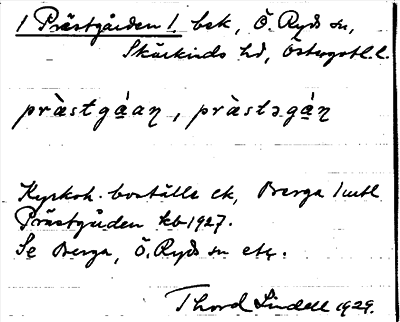 1 Prästgården 1. bek, Ö. Ryds sn,
Skärkinds hd, Östergötl. l.
pràstgá̱aņ, pràstəgá̱ņ
Kyrkoh. boställe ek, Berga 1 mtl
Prästgården kb 1927.
Se Berga, Ö. Ryds sn etc.
Thord Lindell 1929.